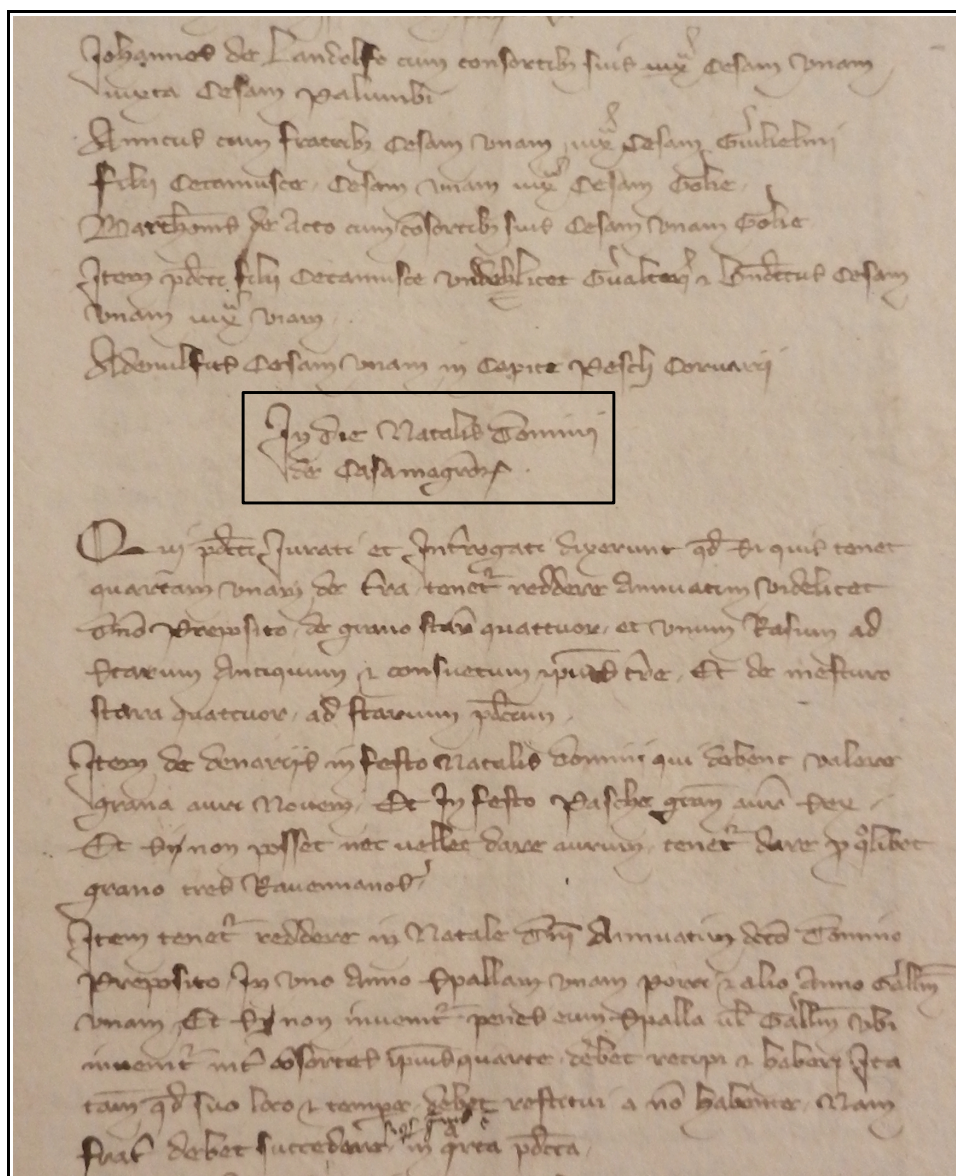 Johannes de Landolfo cum consortib suis iux Cesam vnam
iuxta Cesam Palumbi
Amicus cum fratrib Cesam vnam iux Cesam Guilielmi
filii Cecamusce Cesam vnam iux Cesam Golie
Barthoms de Acto cum cosortib suis Cesam vnam Golie
Item pdcti filii Cecamusce videlicet Gualteri & Bndctus Cesam
vnam iux viam
Adenulfus Cesam vnam in Capite Pesch Coruarii
In die Natalis Domini
de Casamagna
Qui pdcti Jurati et Introgati dixerunt qd si quis tenet
quartam vnam de tra tenet reddere Annuatim videlicet
dno Preposito de grano star quattuor et vnum Rasum ad
starum Antiquum & consuetum ipius tre Et de mesturo
stara quattuor ad starum pdcum
Item de denariis in festo Natalis domini qui debent valere
grana auri Nouem Et In festo Pasche gran auri sex
Et si non posset nec vellet dare aurum tenet dare p qlibet
grano tres Rauennanos
Item tenet reddere in Natale Dni Annuatim dcto Domino
Preposito In vno Anno Spallam vnam porci & alio Anno Gallin
vnam Et si non inuenit penes eum Spalla ul Gallin vbi
inuenit int cosortes ipius quarte debet recipi & haberi Ita
tam qd suo loco & tempe debet restitui a no habente Nam
frat debet succedere in qrta pdcta